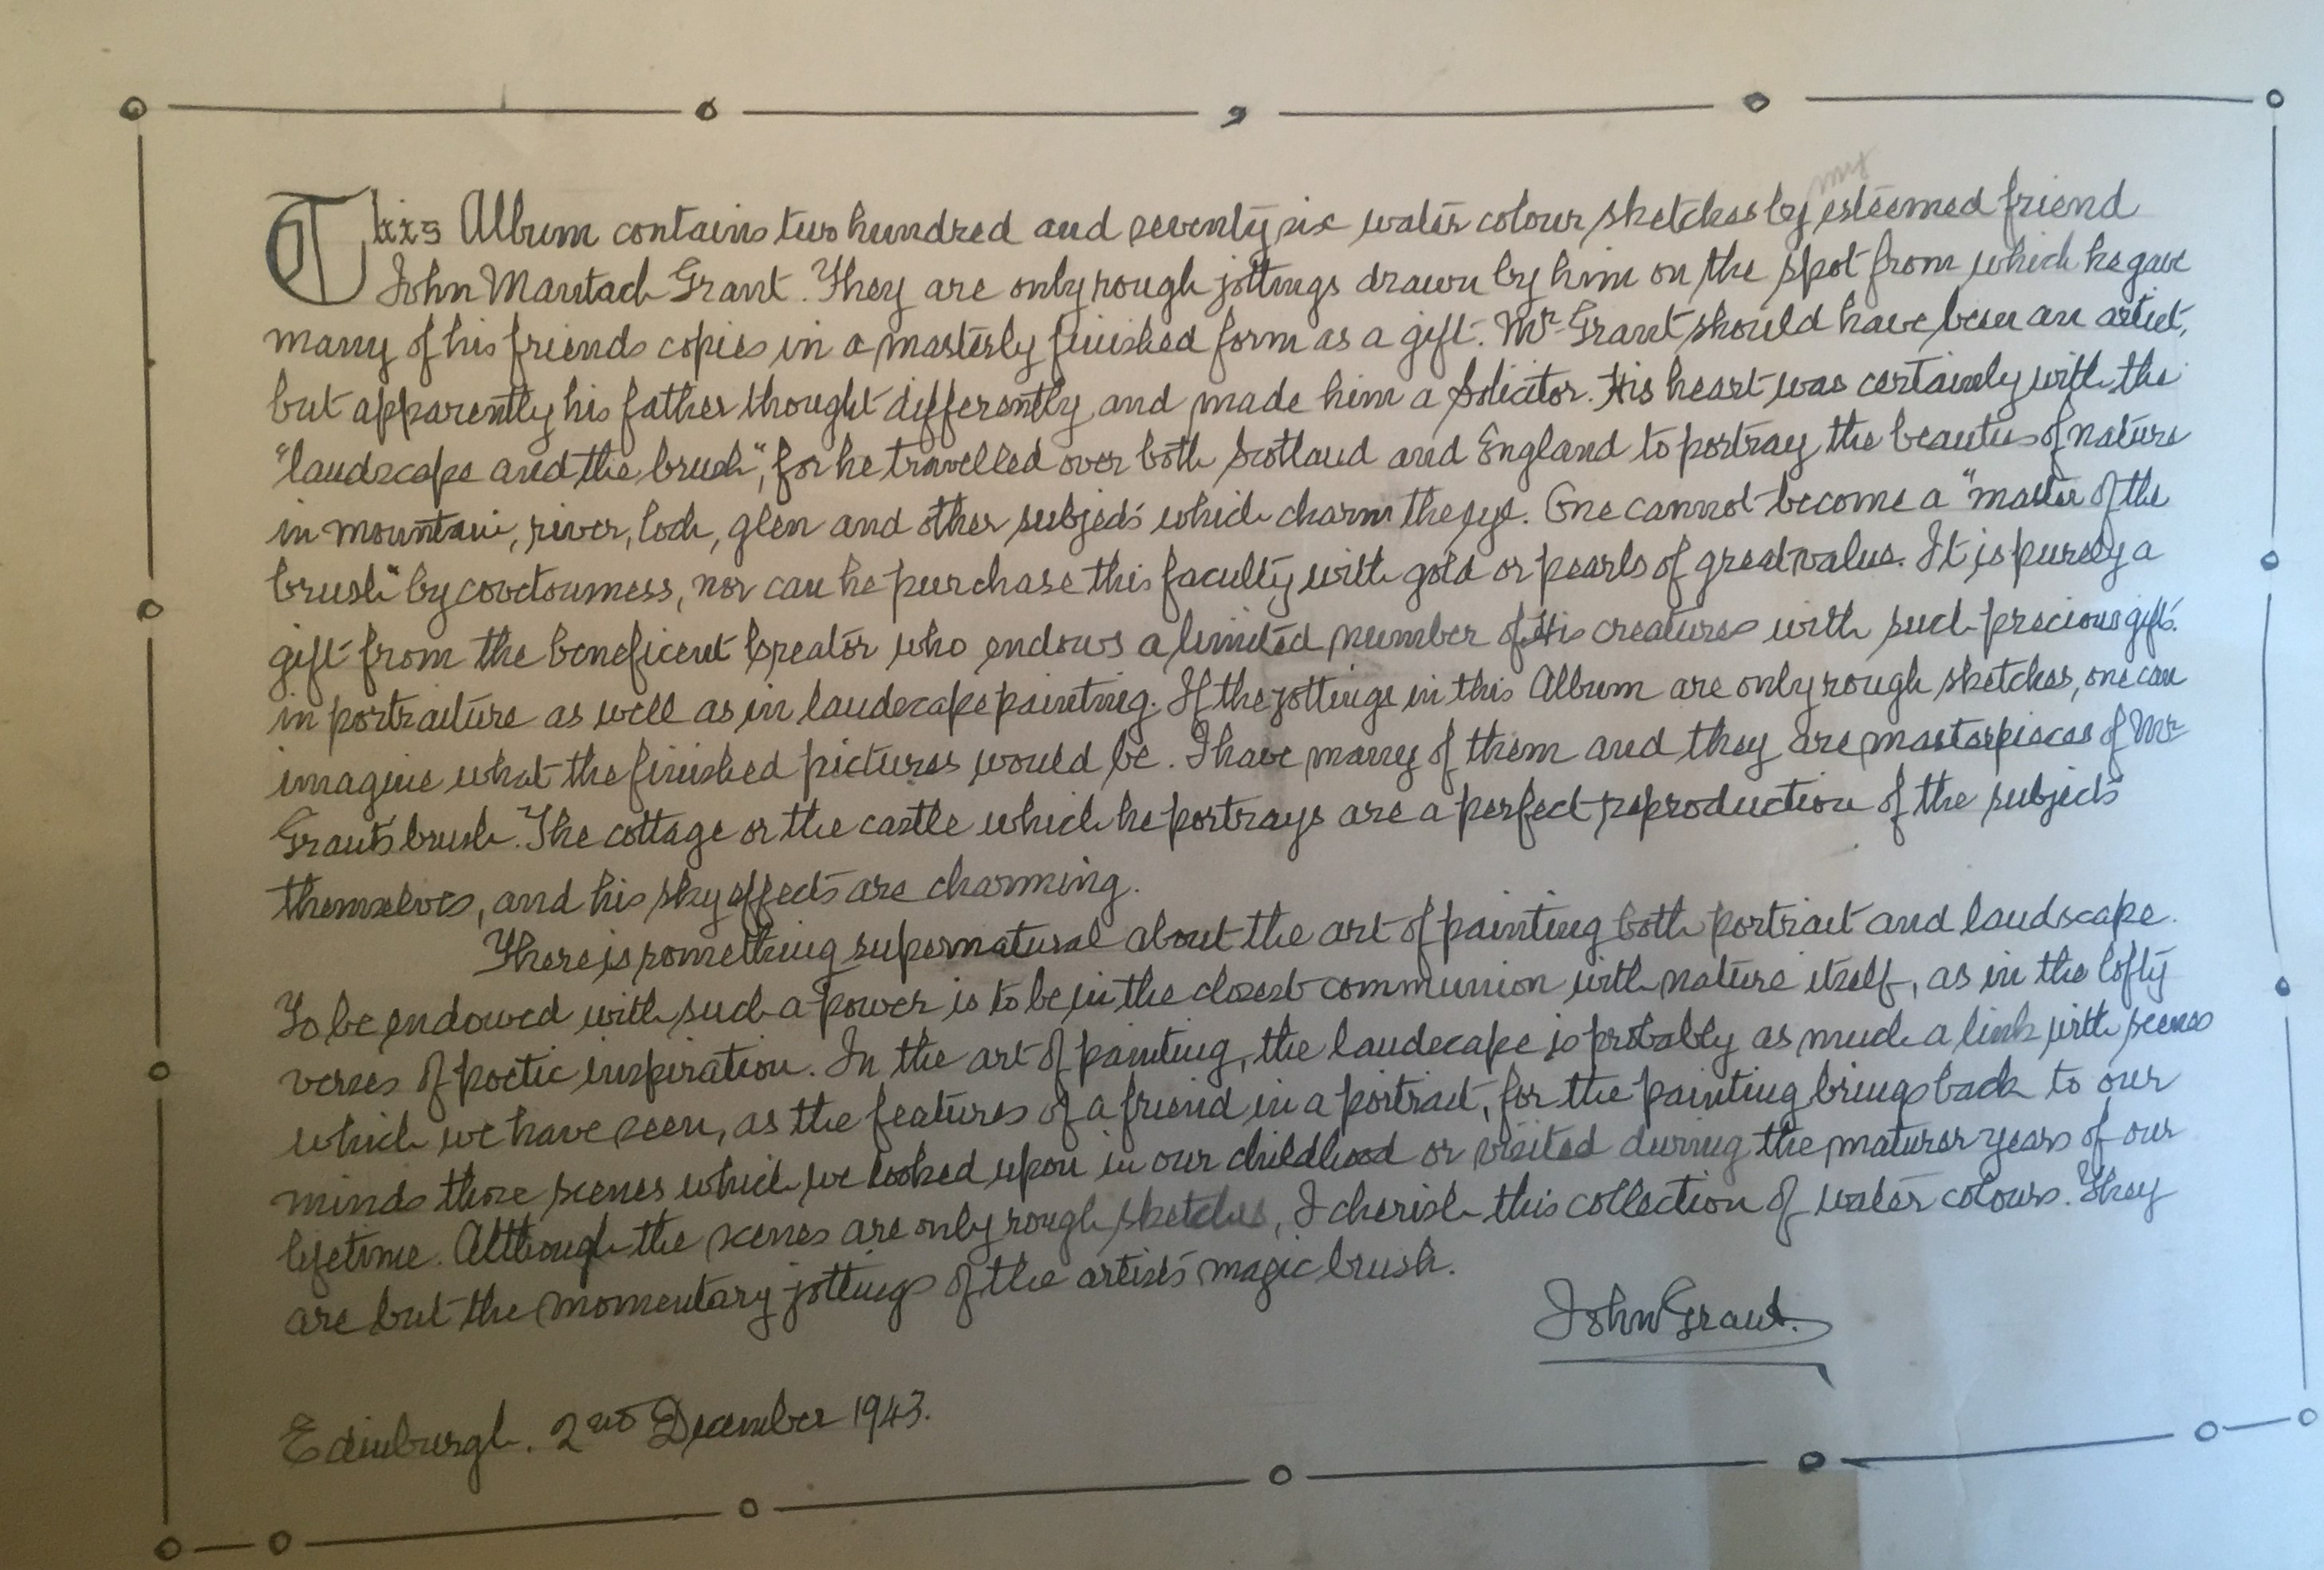 This Album contains two hundred and seventy six water colour sketches by my esteemed friend
John Grant. They are only rough jottings drawn by him on the spot from which he gave
many of his friends copies in a masterly finished form as a gift. Mr Grant should have been an artist,
but apparently his father thought differently and made him a Solicitor. His heart was certainly with the
"landscape and the brush", for he travelled over both Scotland and England to portray the beauties of nature
in mountain, river, loch, glen and other subjects which charm the eye. One cannot become a "master of the
brush" by covetousness, nor can he purchase this faculty with gold or pearls of great value. It is purely a
gift from the beneficent Creator who endows a limited number of His creatures with such precious gifts
in portraiture as well as in landscape painting. If the jottings in this Album are only rough sketches, one can
imagine what the finished pictures would be. I have many of them and they are masterpieces of Mr
Grant's brush. The cottage or the castle which he portrays are a perfect reproduction of the subjects
themselves, and his sky effects are charming.
There is something supernatural about the art of painting both portrait and landscape.
To be endowed with such a power is to be in the closest communion with nature itself, as in the lofty
verses of poetic inspiration. In the art of painting, the landscape is probably as much a link with scenes
which we have seen, as the features of a friend in a portrait, for the painting brings back to our
minds those scenes which we looked upon in our childhood or visited during the maturer years of our
lifetime. Although the scenes are only rough sketches, I cherish this collection of water colours. They
are but the momentary jottings of the artist's magic brush.
John Grant.
Edinburgh. 2nd December 1943.